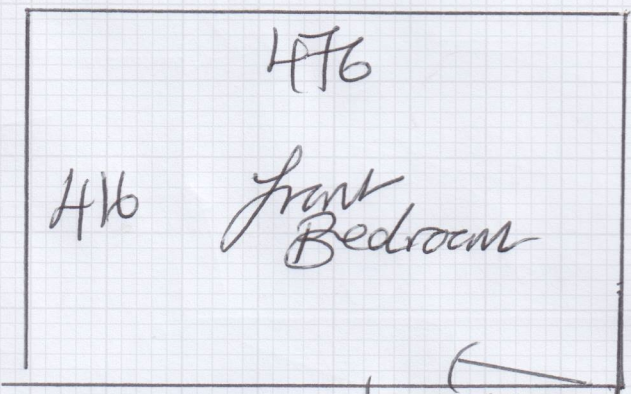 476
416
Front
Bedroom